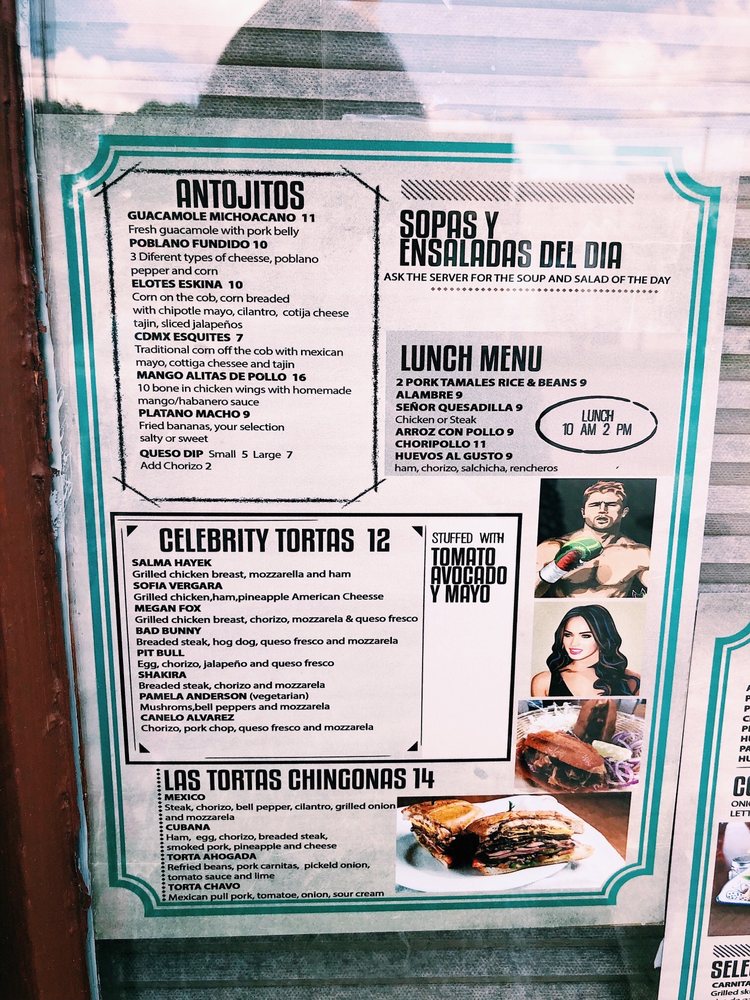 ANTOJITOS
GUACAMOLE MICHOACANO 11
Fresh guacamole with pork belly
POBLANO FUNDIDO 10
3 Diferent types of cheesse, poblano
pepper and corn
ELOTES ESKINA 10
Corn on the cob, corn breaded
with chipotle mayo, cilantro, cotija cheese
tajin, sliced jalapeños
CDMX ESQUITES 7
Traditional corn off the cob with mexican
mayo, cottiga chessee and tajin
MANGO ALITAS DE POLLO 16
10 bone in chicken wings with homemade
mango/habanero sauce
PLATANO MACHO 9
Fried bananas, your selection
salty or sweet
QUESO DIP Small 5 Large 7
Add Chorizo 2
SOPAS Y
ENSALADAS DEL DIA
ASK THE SERVER FOR THE SOUP AND SALAD OF THE DAY
LUNCH MENU
2 PORK TAMALES RICE & BEANS 9
ALAMBRE 9
SEÑOR QUESADILLA 9
Chicken or Steak
ARROZ CON POLLO 9
CHORIPOLLO 11
HUEVOS AL GUSTO 9
ham, chorizo, salchicha, rencheros
LUNCH
10 AM 2 PM
CELEBRITY TORTAS 12
SALMA HAYEK
Grilled chicken breast, mozzarella and ham
SOFIA VERGARA
Grilled chicken,ham,pineapple American Cheesse
MEGAN FOX
Grilled chicken breast, chorizo, mozzarela & queso fresco
BAD BUNNY
Breaded steak, hog dog, queso fresco and mozzarela
PIT BULL
Egg, chorizo, jalapeño and queso fresco
SHAKIRA
Breaded steak, chorizo and mozzarela
PAMELA ANDERSON (vegetarian)
Mushroms,bell peppers and mozzarela
CANELO ALVAREZ
Chorizo, pork chop, queso fresco and mozzarela
STUFFED WITH
TOMATO
AVOCADO
Y MAYO
LAS TORTAS CHINGONAS 14
MEXICO
Steak, chorizo, bell pepper, cilantro, grilled onion
and mozzarela
CUBANA
Ham, egg, chorizo, breaded steak,
smoked pork, pineapple and cheese
TORTA AHOGADA
Refried beans, pork carnitas, pickeld onion,
tomato sauce and lime
TORTA CHAVO
Mexican pull pork, tomatoe, onion, sour cream